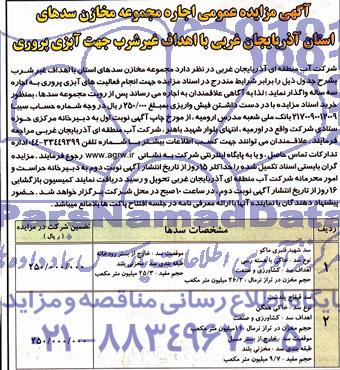 آگهی مزایده عمومی اجاره مجموعه مخازن سدهای
استان آذربایجان غربی با اهداف غیرشرب جهت آبزی پروری
شرکت آب منطقه ای آذربایجان غربی در نظر دارد مجموعه مخازن سدهای استان با اهداف غیر شرب
بشرح جدول ذیل را برابر شرایط مندرج در اسناد مزایده جهت انجام فعالیت های آبزی پروری به اجاره
سه ساله واگذار نماید، لذا به آگاهی علاقمندان به اجاره می رساند پس از رویت مجموعه سدها، بمنظور
خرید اسناد مزایده با در دست داشتن فیش واریزی بمبلغ ۲۵۰/۰۰۰ ریال در وجه شماره حساب سیبا
۲۱۷۰۰۹۰۱۷۰۰۹ بانک ملی شعبه مدرس ارومیه، از موخ چاپ آگهی نوبت اول به دبیرخانه مرکزی حوزه
ستادی شرکت واقع در ارومیه، انتهای بلوار شهید باهنر، شرکت آب منطقه ای آذربایجان غربی مراجعه
فرمایند. علاقمندان می توانند جهت کسب اطلاعات بیشتر با شماره تلفن ۳۳۴۴۹۳۹۹-۰۴۴ اداره
تدارکات تماس حاصل، ویا به پایگاه اینترنتی شرکت به نشانی www.agrw.ir رجوع فرمایند. مزایده
گران بایستی اسناد تکمیل شده را حداکثر ۱۵ روز از تاریخ انتشار آگهی نوبت دوم به دبیرخانه حراست و
امور محرمانه شرکت آب منطقه ای آذربایجان غربی تحویل و رسید دریافت نمایند کمیسیون بازگشایی
۱۶ روز از تاریخ انتشار آگهی نوبت دوم در ساعت ۱۰ صبح در محل شرکت برگزار خواهد شد. حضور
پیشنهاد دهندگان یا نماینده آنها با ارائه معرفی نامه در جلسه افتتاح پاکت ها بلامانع می باشد.
ردیف مشخصات سدها تضمین شرکت در مزایده
( ریال )
۱ سد شهید قنبری ماکو
اهداف سد : کشاورزی و صنعت
حجم مخزن در تراز نرمال : ۲۶/۳ میلیون متر مکعب
موقعیت سد : خارج از بستر رودخانه
حجم مفید : ۲۵/۳ میلیون متر مکعب
۲۵۰/۰۰۰/۰۰۰
۲ نوع سد : خاکی همگن
اهداف سد : کشاورزی و صنعت
حجم مخزن در تراز نرمال : ۱۱ میلیون متر مکعب
موقعیت سد : خارج از بستر مسیل
طبقه بندی سد : مخزنی بلند
حجم مفید : ۹/۷ میلیون متر مکعب
۲۵۰/۰۰۰/۰۰۰
ParsNamadData
پایگاه اطلاع رسانی مناقصه و مزایده
۰۲۱-۸۸۳۴۹۶۷۰